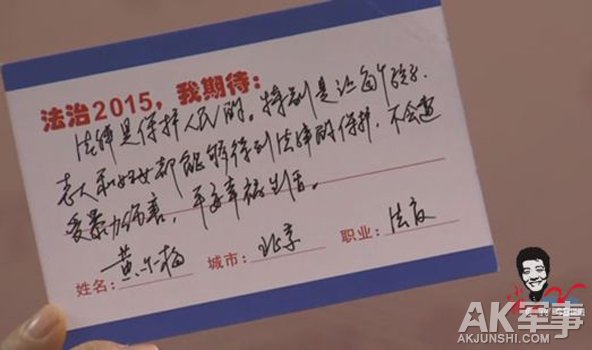 法治2015，我期待：
法律是保护人民的。特别是让每个孩子、
老人和妇女都能够得到法律的保护，不会遭
受暴力伤害，平安幸福生活。
姓名：黄尔梅 城市：北京 职业：法官
AK军事
AKJUNSHI.COM